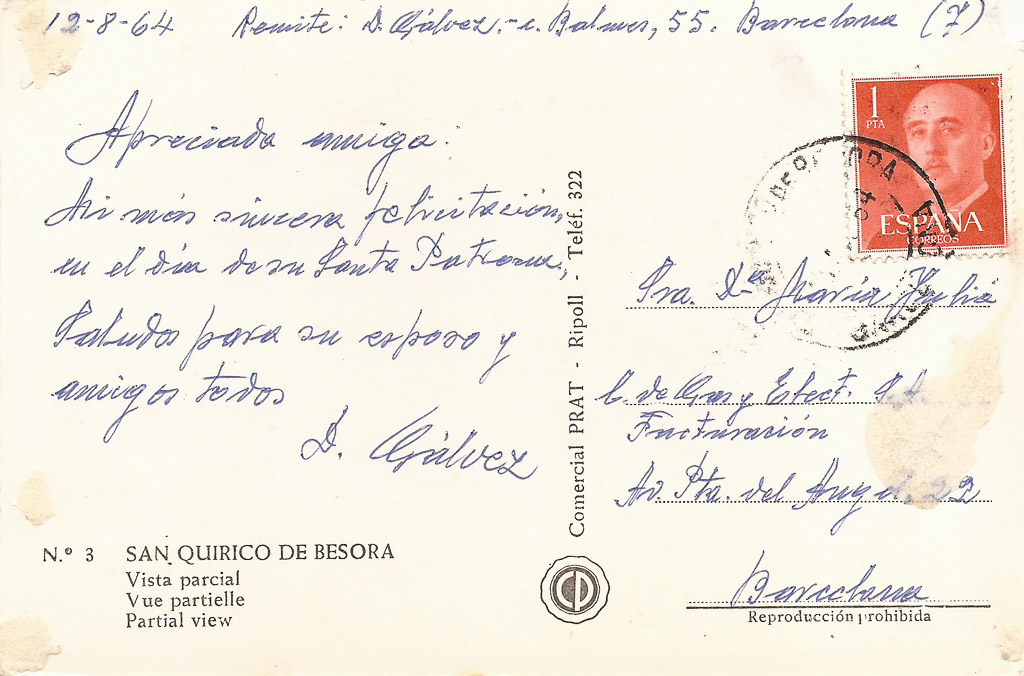 12-8-64 Remite: D. Gálvez.- c. Balmes, 55. Barcelona (7)
Apreciada amiga:
Mi más sincera felicitación,
en el día de su Santa Patrona,
Saludos para su esposo y
amigos todos
D. Gálvez
N.º 3 SAN QUIRICO DE BESORA
Vista parcial
Vue partielle
Partial view
Comercial PRAT - Ripoll - Teléf. 322
CP
1
PTA
ESPAÑA
CORREOS
Sra. Dª María Juliá
C. de Gas y Elect. S.A.
Facturación
Av. Pta. del Angel, 22
Barcelona
Reproducción prohibida